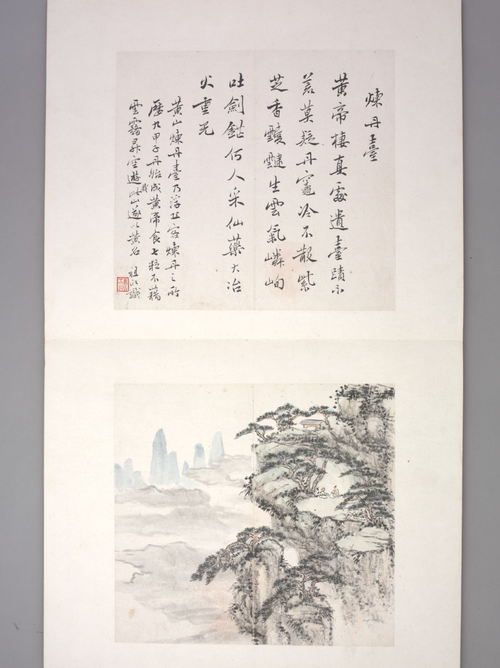 煉丹臺
黃帝棲真處遺臺蹟不
荒莫疑丹竈冷不散紫
芝香靉靆生雲氣嶙峋
吐劍鋩何人采仙藥大冶
火重光
黃山煉丹臺乃浮丘煉丹之所
歷九甲子丹始成黃帝食七粒不藉
雲霧昇空遊此山遂以黃名 識